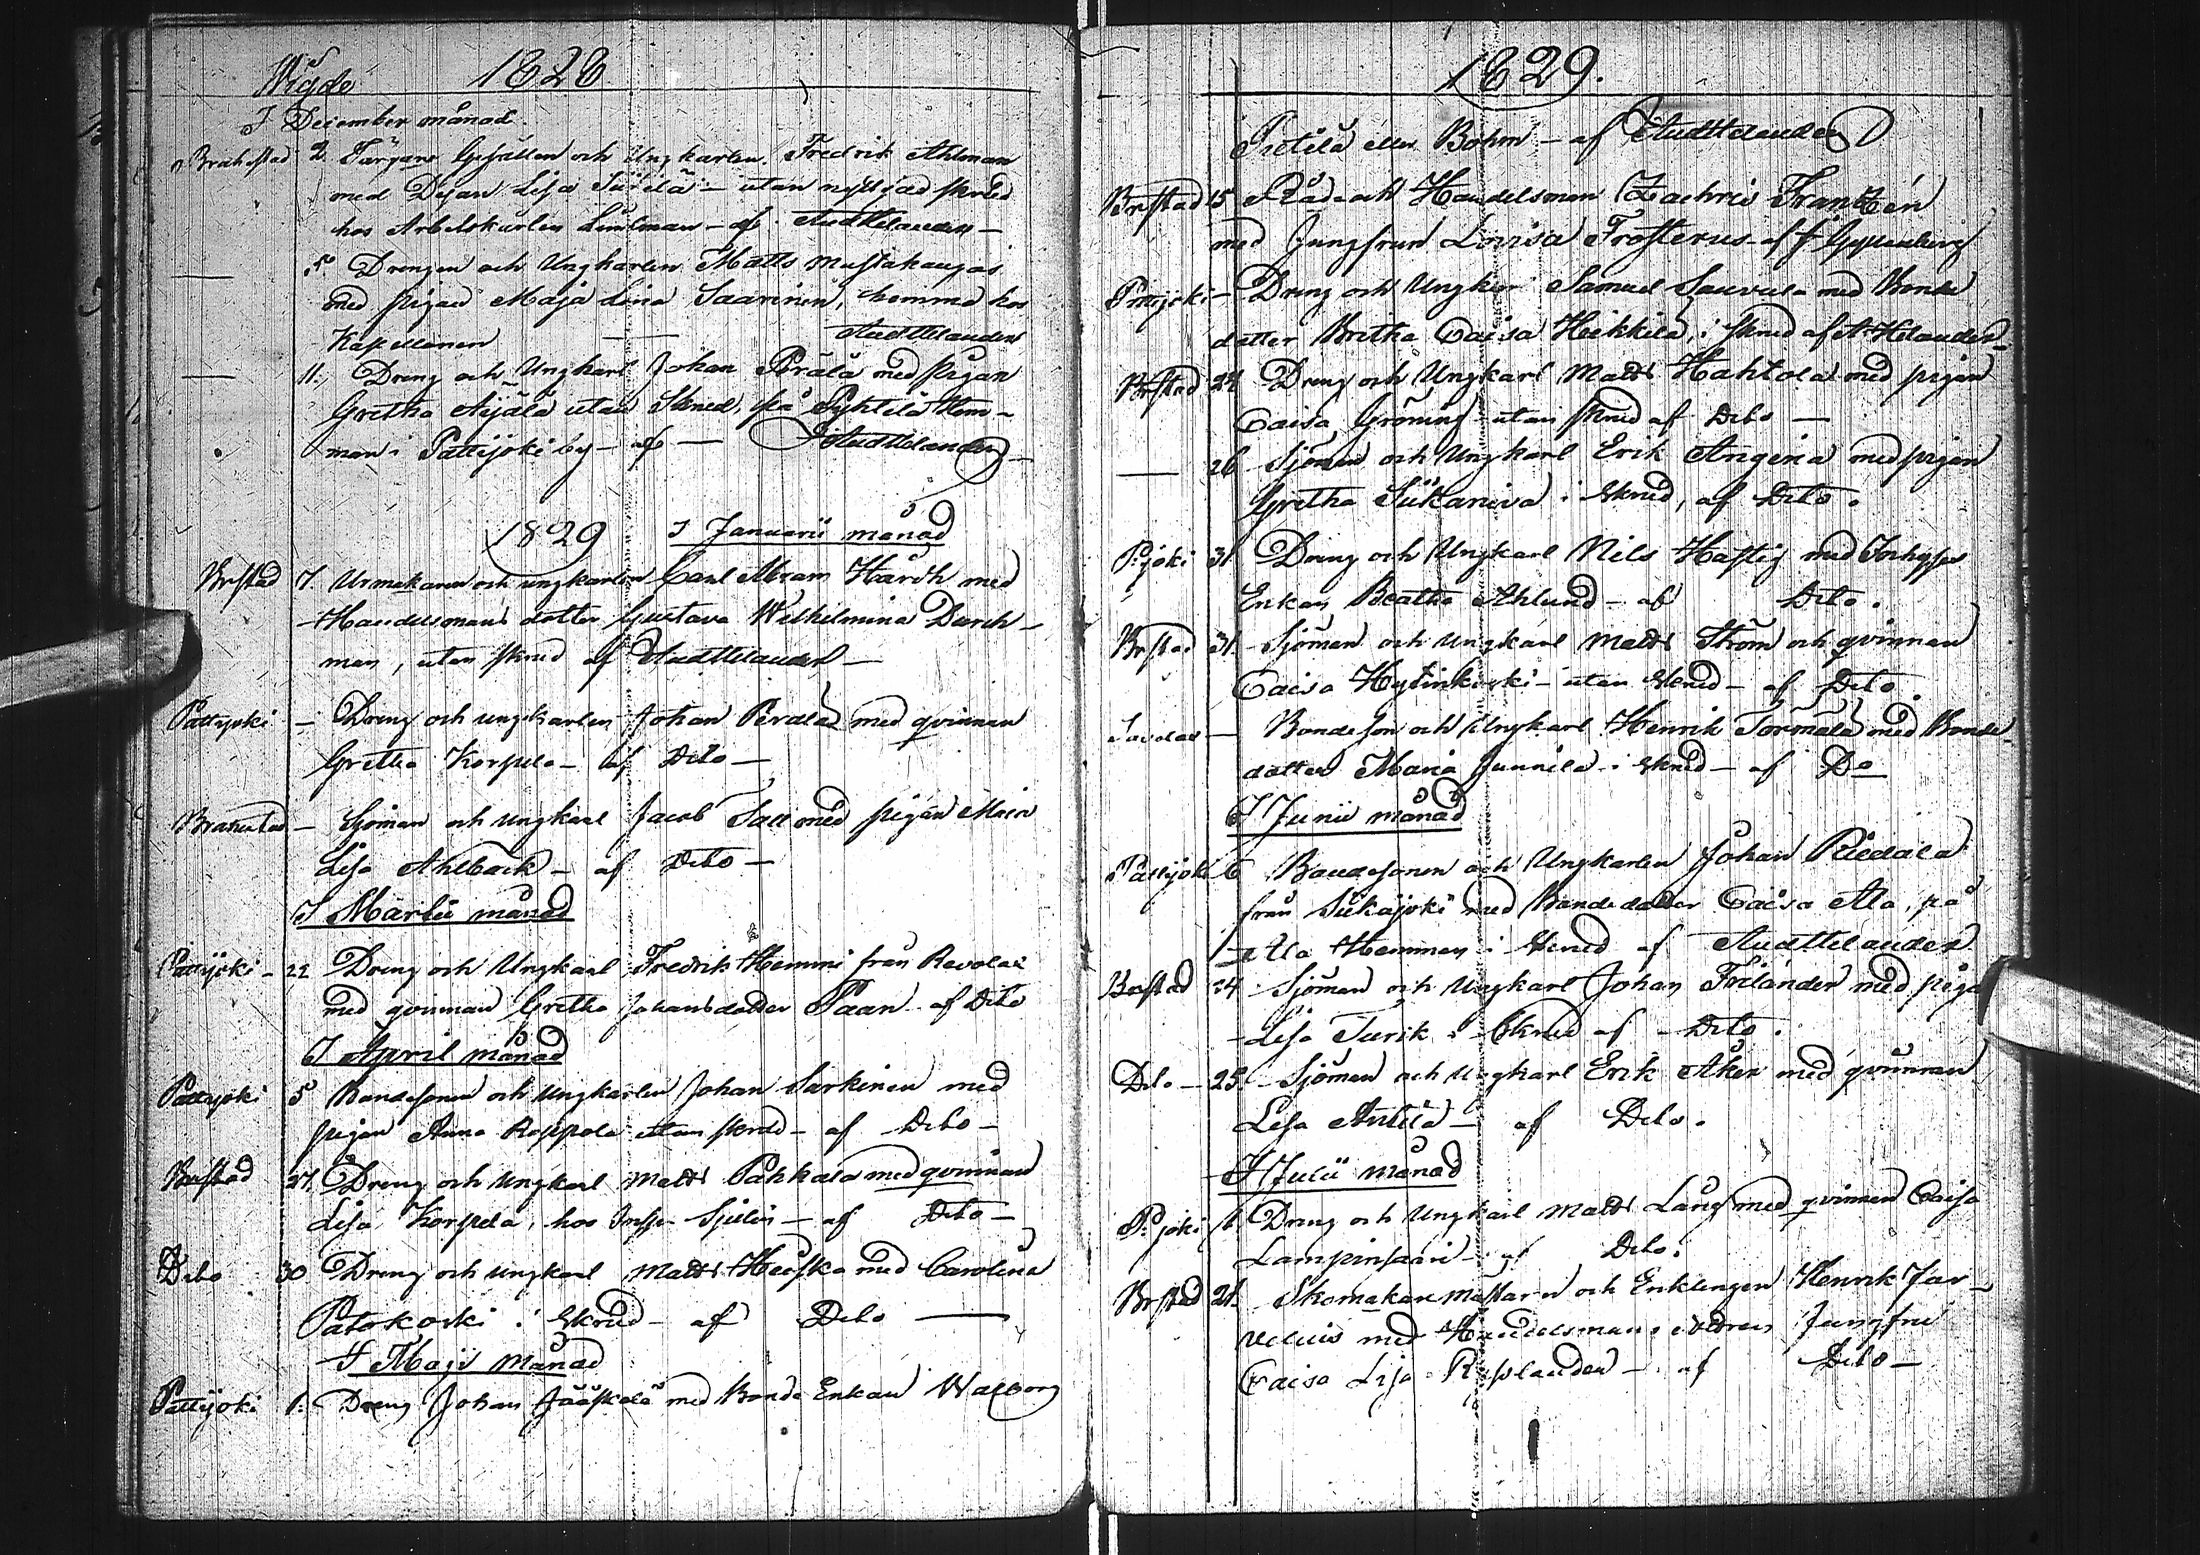 Wigde 1828
I December månad.
Brahestad 2. Färgare Gesällen och Ungkarlen Fredrik Ahlman
med Pigan Lisa Siirilä - utan nyttjad skrud
hos Arbetskarlen Lindman - af Aud Helander -
— 5. Drengen och Ungkarlen Matts Mustakangas
med pigan Maja Lisa Saarinen, hemma hos
Kapellanen — Aud Helander
— 11. Dreng och Ungkarl Johan Perälä med pigan
Gretha Äijälä utan Skrud, på Pyhtilä Hem-
man i Pattijoki by - af — Aud Helander -
1829 I Januarii månad
Brstad 7. Urmakaren och ungkarlen Carl Abram Hårdh med
Handelsmans dotter Gustava Wilhelmina Durch-
man, utan skrud af Aud Helander -
Pattijoki - Dreng och ungkarlen Johan Perälä med qvinnan
Gretha Korpela - af Dito -
Brahestad - Sjöman och ungkarl Jacob Sall med pigan Maria
Lisa Ahlbäck - af Dito -
I Martii månad
Pattijoki - 22 Dreng och Ungkarl Fredrik Hemmi från Revolax
med qvinnan Gretha Johansdotter Paan - af Dito
I April månad
Pattijoki 5 Bondesonen och Ungkarlen Johan Sarkinen med
pigan Anna Roppola utan skrud - af Dito -
Brstad 27. Dreng och Ungkarl Matts Pakkala med qvinnan
Lisa Korpela, hos Insp. - af Dito -
Dito 30 Dreng och ungkarl Matts Heiska med Carolina
Patokoski i Skrud - af Dito —
I Maji månad
Pattijoki 1. Dreng Johan Jääskelä med Bonde Enkan Walborg
1829.
Pietilä eller Bohm - af Aud Helander
Brstad 15 Råd och Handelsman Zachris Frantzén
med Jungfrun Lovisa Frosterus af
Pattijoki - Dreng och Ungker Samuel Sauvula med Bonde
dotter Britha Caisa Heikkilä, i skrud af A Helander -
Brstad 24 Dreng och Ungkarl Matts Hahtola med pigan
Caisa Gröning utan skrud af Dito —
— 26 Sjöman och Ungkarl Erik Angeria med pigan
Gretha Siikaniva i Skrud, af Dito.
P:joki 31 Dreng och Ungkarl Nils Hastig med Inhyses
Enkan Beatha Ahlund - af Dito.
Brstad 31. Sjöman och Ungkarl Matts Ström och qvinnan
Caisa Hytinkoski - utan Skrud - af Dito.
— Bondeson och Ungkarl Henrik Törmälä med Bonde
dotter Maria Junnila i skrud - af Do
I Junii månad
Pattijoki 6 Bondesonen och Ungkarlen Johan
från Siikajoki med Bondedotter Caisa Ala, på
Ala Hemman i Skrud af Aud Helander
Brstad 24 Sjöman och Ungkarl Johan Frilander med piga
Lisa Turik i Skrud af Dito.
Dito - 25 - Sjöman och Ungkarl Erik Åker med qvinnan
Lisa Anttila - af Dito.
I Julii månad
P:joki 6. Dreng och Ungkarl Matts Lång med qvinnan Caisa
Lampinsaari - af Dito.
Brstad 21. Skomakare mästaren och Enklingen Henrik Jar-
velius med Handelsmans dottren Jungfru
Caisa Lisa Roplander - af Dito -